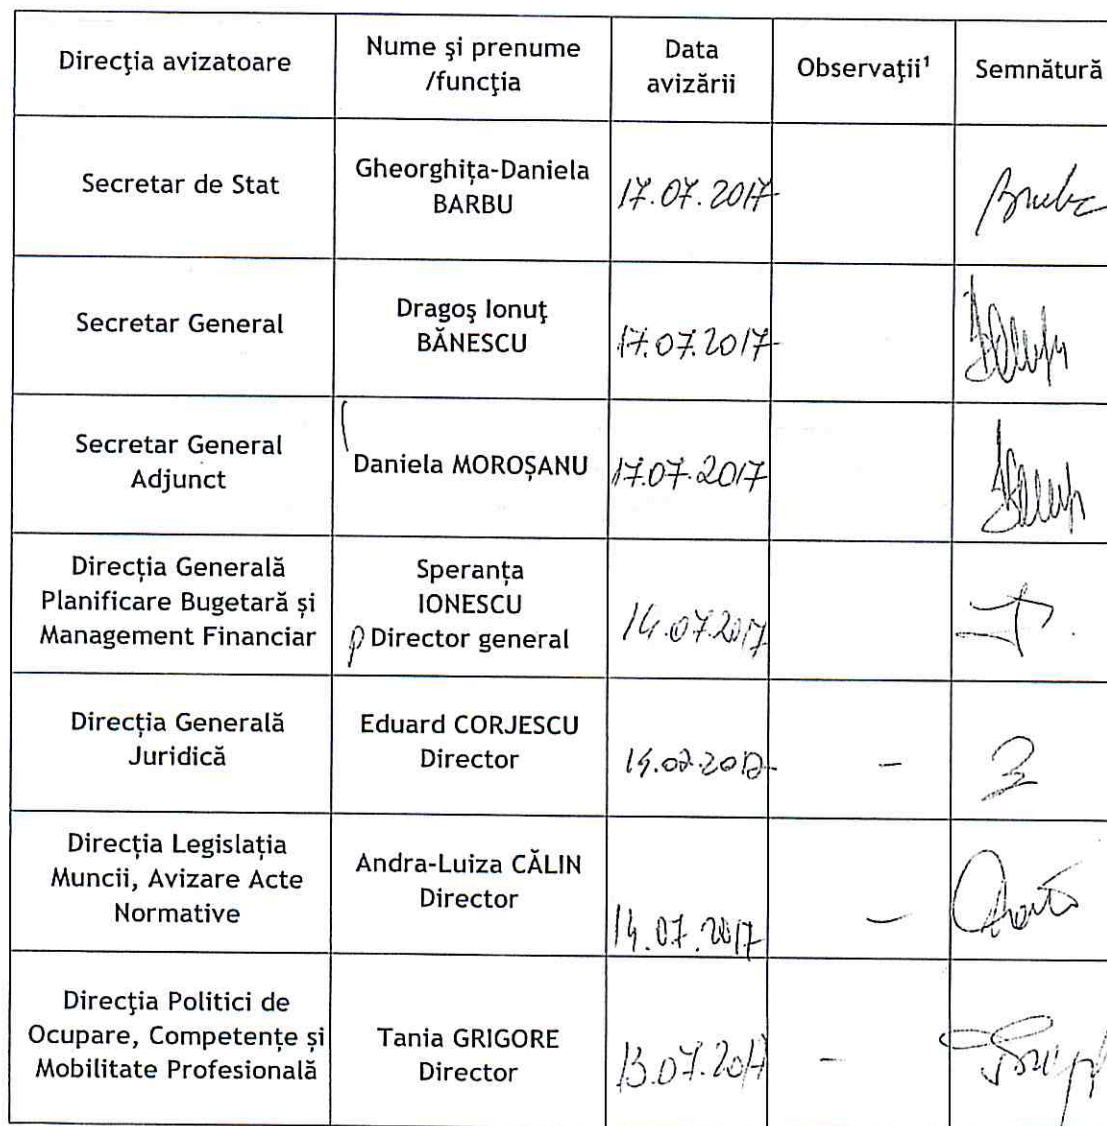 Direcţia avizatoare
Nume şi prenume
/funcţia
Data
avizării
Observaţii¹
Semnătură
Secretar de Stat
Gheorghița-Daniela
BARBU
17.07.2017
Secretar General
Dragoş Ionuţ
BĂNESCU
17.07.2017
Secretar General
Adjunct
Daniela MOROȘANU
17.07.2017
Direcția Generală
Planificare Bugetară și
Management Financiar
Speranța
IONESCU
p Director general
14.07.2017
Direcția Generală
Juridică
Eduard CORJESCU
Director
14.07.2017
-
Direcția Legislația
Muncii, Avizare Acte
Normative
Andra-Luiza CĂLIN
Director
14.07.2017
-
Direcţia Politici de
Ocupare, Competențe și
Mobilitate Profesională
Tania GRIGORE
Director
13.07.2017
-